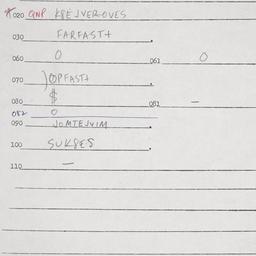 *020 QNP KØEJVERØVES
030 FARFAST+
060 O 061 O
070 )OPFAST+
080 $ 081 —
082 O
090 JOMTEJVIM
100 SUKSES
110 —